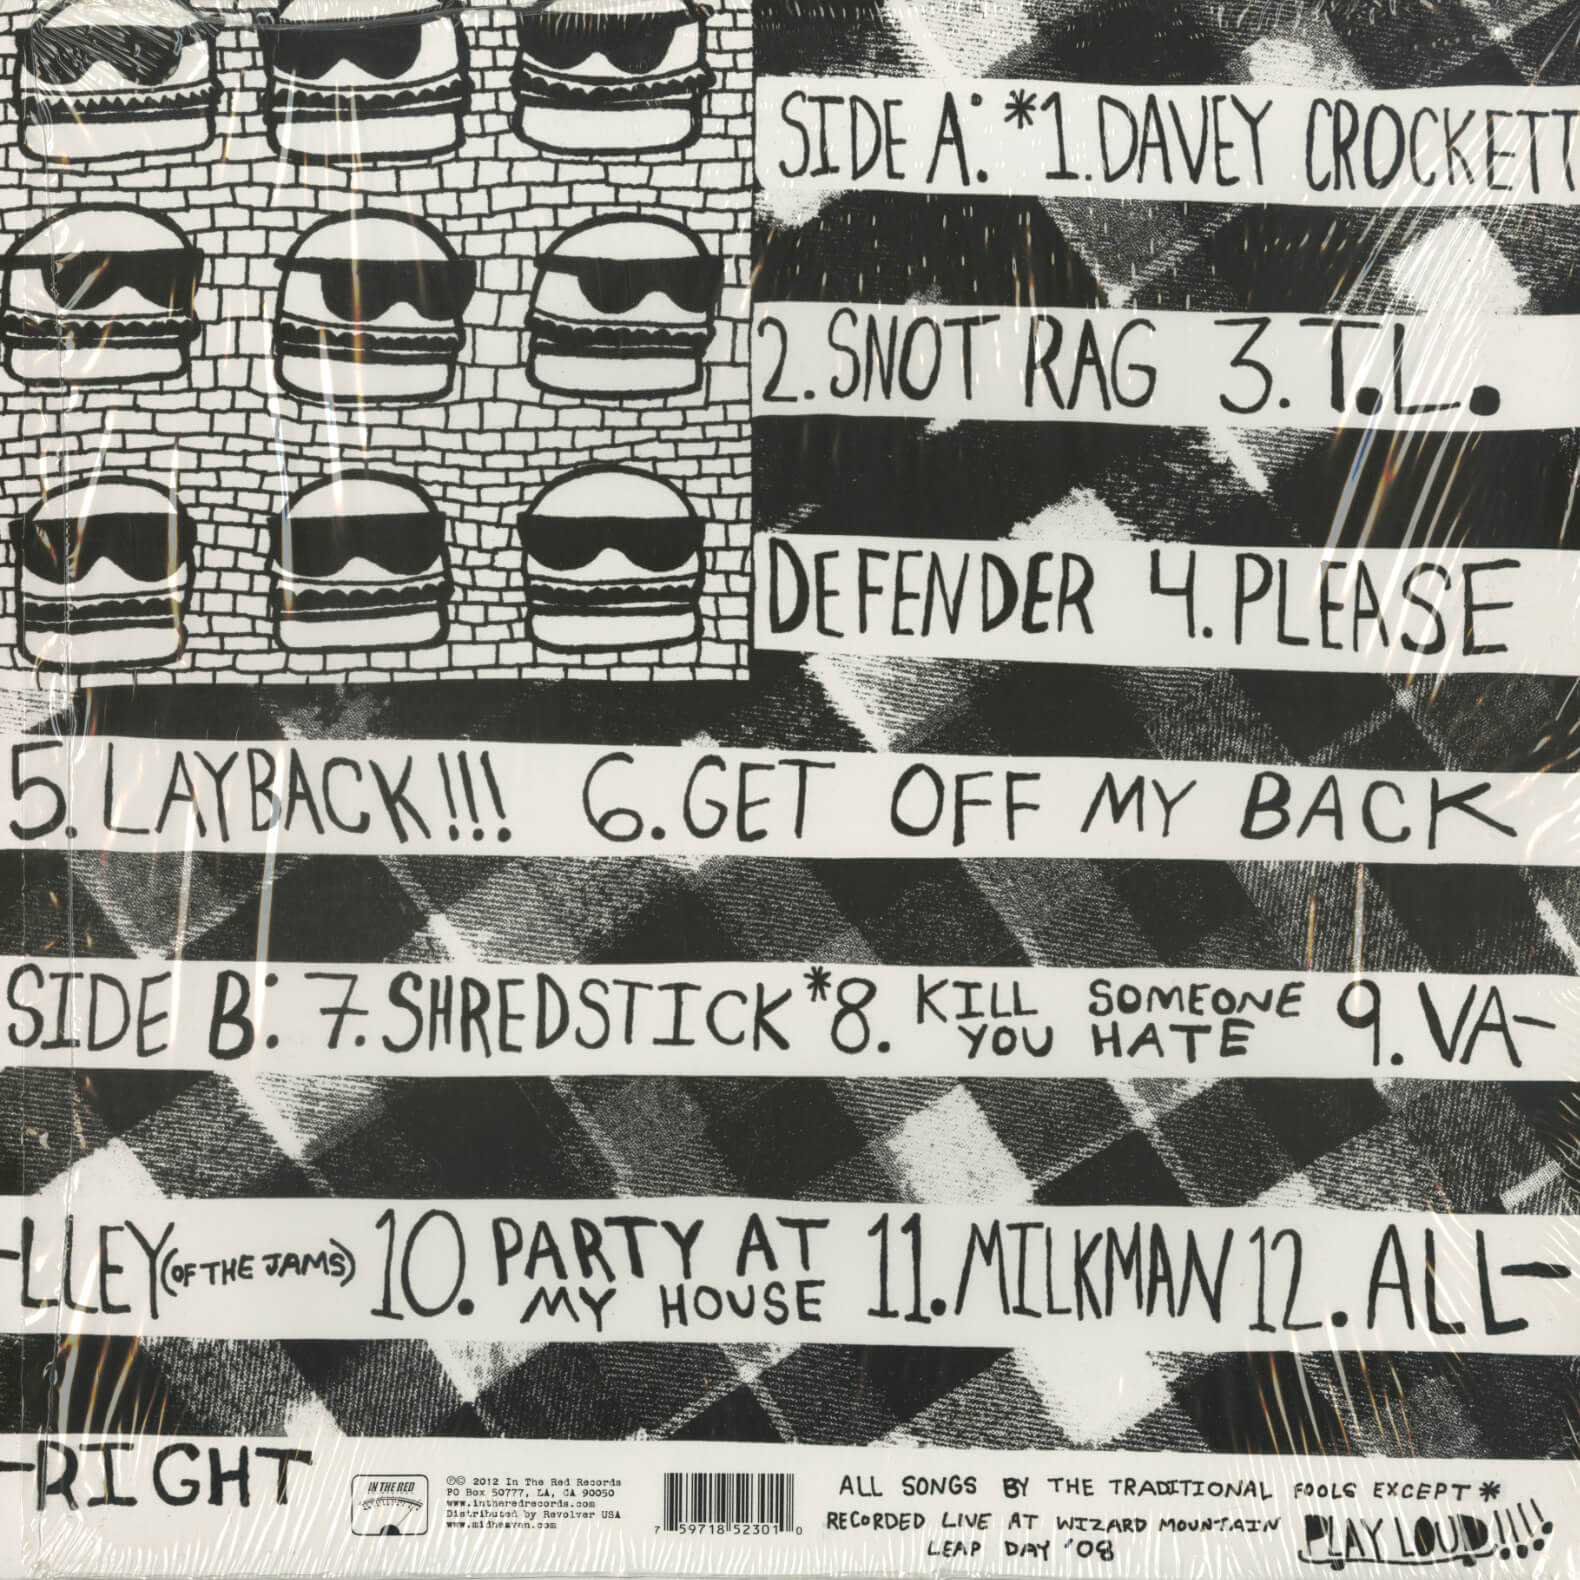 SIDE A: *1. DAVEY CROCKETT
2. SNOT RAG 3. T.L.
DEFENDER 4. PLEASE
5. LAYBACK!!! 6. GET OFF MY BACK
SIDE B: 7. SHREDSTICK *8. KILL SOMEONE YOU HATE 9. VA-
-LLEY (OF THE JAMS) 10. PARTY AT MY HOUSE 11. MILKMAN 12. ALL-
-RIGHT
IN THE RED
℗© 2012 In The Red Records
PO Box 50777, LA, CA 90050
www.intheredrecords.com
Distributed by Revolver USA
www.midheaven.com
7 59718 52301 0
ALL SONGS BY THE TRADITIONAL FOOLS EXCEPT *
RECORDED LIVE AT WIZARD MOUNTAIN
LEAP DAY '08
PLAY LOUD!!!!